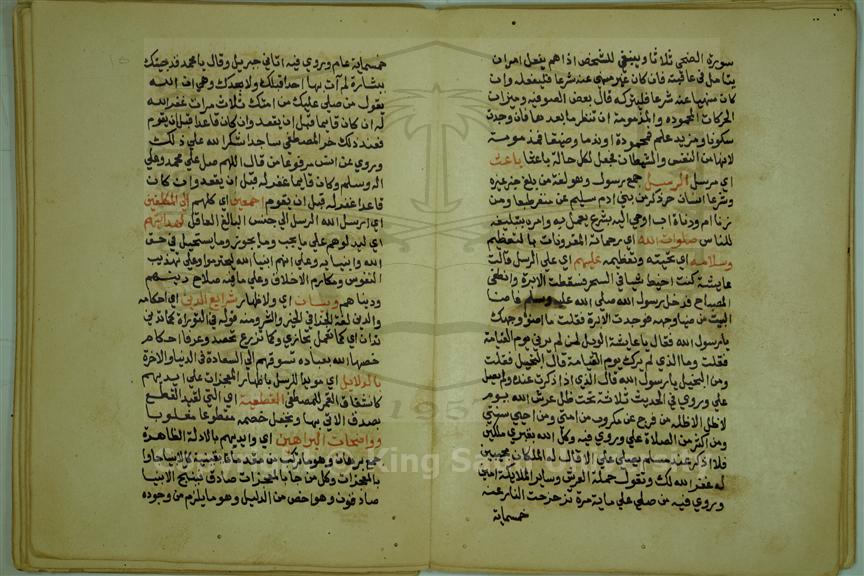 سورة الضحى ثلاثا وينبغي للشخص اذا هم بفعل امر ان
يتامل في عاقبته فان كان غير منهى عنه شرعا فليفعله وان
كان منهيا عنه شرعا فليتركه قال بعض الصوفيه وميزان
الحركات المحموده والمذمومة ان تنظر ما بعدها فان وجدت
سكونا ومزيد علم فمحمودة او ندما وضيقا فمذمومة
لانها من النفس والشيطان فجعل لكل حالة باعثا باعث
اي مرسل الرسل جمع رسول وهو لغة من بلغ خبر غيره
وشرعا انسان حر ذكر من بني ادم سليم عن منفر طبعا ومن
زنا ام ودناة اب اوحي اليه بشرع يعمل به وامره بتبليغه
للناس صلوات الله اي رحماته المقرونات بالتعظيم
وسلامه اي تحيته وتعظيمه عليهم اي على الرسل قالت
عايشة كنت اخيط شيا في السحر فسقطت الابرة وانطفى
المصباح فدخل رسول الله صلى الله عليه وسلم فاضا
البيت من ضيا وجهه فوجدت الابرة فقلت ما اضو وجهك
يا رسول الله فقال يا عايشة الويل لمن لم يرني يوم القيامة
فقلت وما الذي لم يرك يوم القيامة قال البخيل فقلت
ومن البخيل يا رسول الله قال الذي اذا ذكرت عنده ولم يصل
علي وروي في الحديث ثلاثة تحت ظل عرش الله يوم
لا ظل الا ظله من فرج عن مكروب من امتي ومن احيى سنتي
ومن اكثر من الصلاة علي وروي فيه وكل الله بقبري ملكين
فلا اذكر عند مسلم يصلي علي الا قال له الملكان مجيبين
له غفر الله لك وتقول حملة العرش وساير الملايكة امين
وروي فيه من صلى علي ماية مرة تزحزحت النار عنه
خمسماية
خمسماية عام وروي فيه اتاني جبريل وقال يا محمد قد جيتك
ببشارة لم آت بها احدا قبلك ولا بعدك وهي ان الله
يقول من صلى عليك من امتك ثلاث مرات غفر الله
له ان كان قايما قبل ان يقعد وان كان قاعدا قبل ان يقوم
فعند ذلك خر المصطفى ساجدا شكرا لله على ذلك
وروي عن انس مرفوعا من قال اللهم صل على محمد وعلى
اله وسلم وكان قايما غفر له قبل ان يقعد وان كان
قاعدا غفر له قبل ان يقوم اجمعين اي كلهم الى المكلفين
اي ارسل الله الرسل الى جنس البالغ العاقل لهدايتهم
اي ليدلوهم على ما يجب وما يجوز وما يستحيل في حق
الله وانبيايه وعلى انهم انبيا الله ليحترموا وعلى تهذيب
النفوس ومكارم الاخلاق وعلى ما فيه صلاح دينهم
ودنياهم وبيان اي ولاظهار شرايع الدين اي احكامه
والدين لغة الجزا في الخير والشر ومنه قوله في التوراة كما تدين
تدان اي كما تعمل تجازى وكما تزرع تحصد وعرفا احكام
خصها الله بعباده تسوقهم الى السعادة في الدنيا والاخرة
بالدلايل اي مويدا للرسل باظهار المعجزات على ايديهم
كانشقاق القمر للمصطفى القطعية اي التي تفيد القطع
بصدق الاتي بها وتجعل خصمه مقطوعا مغلوبا
وواضحات البراهين اي وايدهم بالادلة الظاهرة
جمع برهان وهو ما تركب من مقدمات يقينية كالانبيا جاوا
بالمعجزات وكل من جا بالمعجزات صادق فينتج الانبيا
صادقون وهو اخص من الدليل وهو ما يلزم من وجوده
Copyright © King Saud University
1957